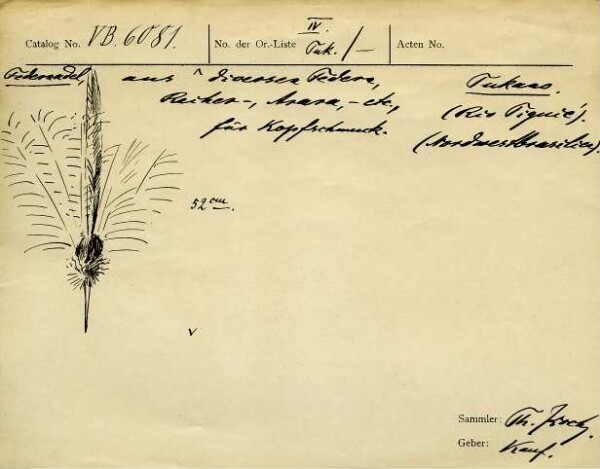 Catalog No. VB. 6081. No. der Or.-Liste IV. Tuk. /— Acten No.
Federnadel, aus diversen Federn, Tukano.
Reiher-, Arara,- etc., (Rio Tiquié).
für Kopfschmuck. (Nordwestbrasilien).
52 cm.
v
Sammler: Th. Koch.
Geber: Kauf.